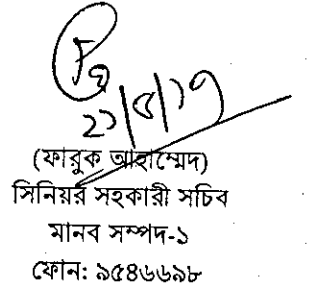 (ফারুক আহাম্মেদ)
সিনিয়র সহকারী সচিব
মানব সম্পদ-১
ফোন: ৯৫৪৬৬৯৮